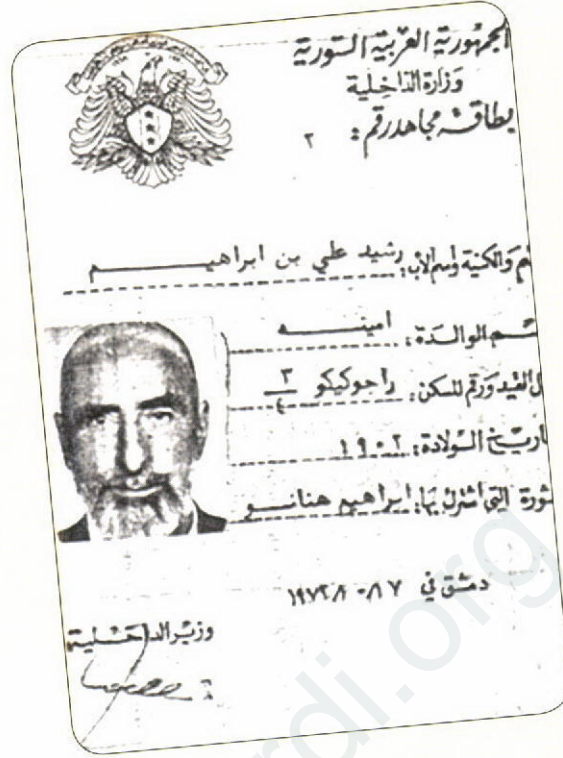 الجمهورية العربية السورية
وزارة الداخلية
بطاقة مجاهد رقم : ٢
م والكنية واسم الاب: رشيد علي بن ابراهيم
ـم الوالدة: امينه
ل القيد ورقم المسكن: راجوكيكو ٣
اريخ الولادة: ١٩٠٢
ثورة التي اشترك بها: ابراهيم هنانو
دمشق في
وزير الداخلية
rdi.org